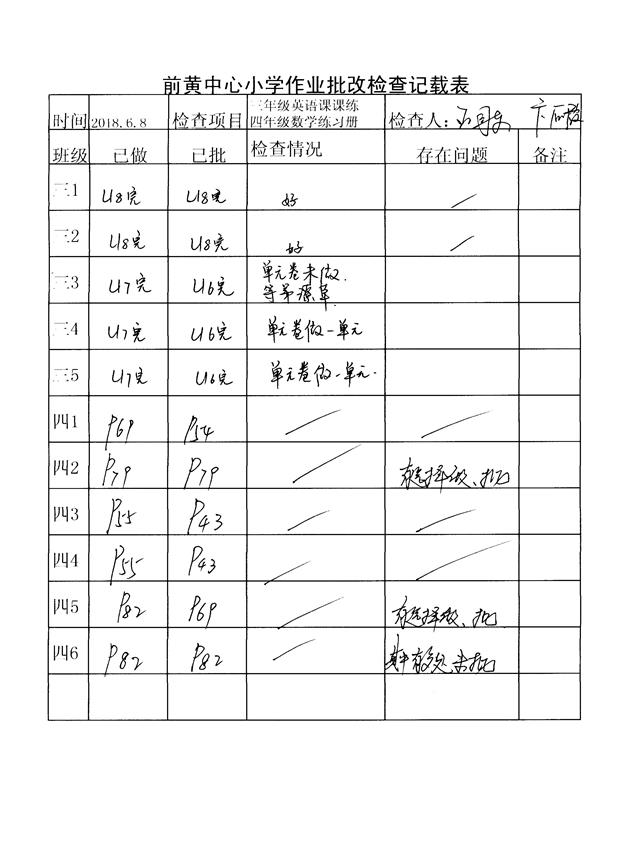 前黄中心小学作业批改检查记载表
时间 2018.6.8 检查项目 三年级英语课课练 四年级数学练习册 检查人：
班级 已做 已批 检查情况 存在问题 备注
三1 U8完 U8完 好 /
三2 U8完 U8完 好 /
三3 U7完 U6完 单元卷未做.
三4 U7完 U6完 单元卷做一单元
三5 U7完 U6完 单元卷做一单元.
四1 P69 P54 / /
四2 P79 P79 / 有选择做、批
四3 P55 P43 / /
四4 P55 P43 / /
四5 P82 P69 / 有选择做、批
四6 P82 P82 / 未批